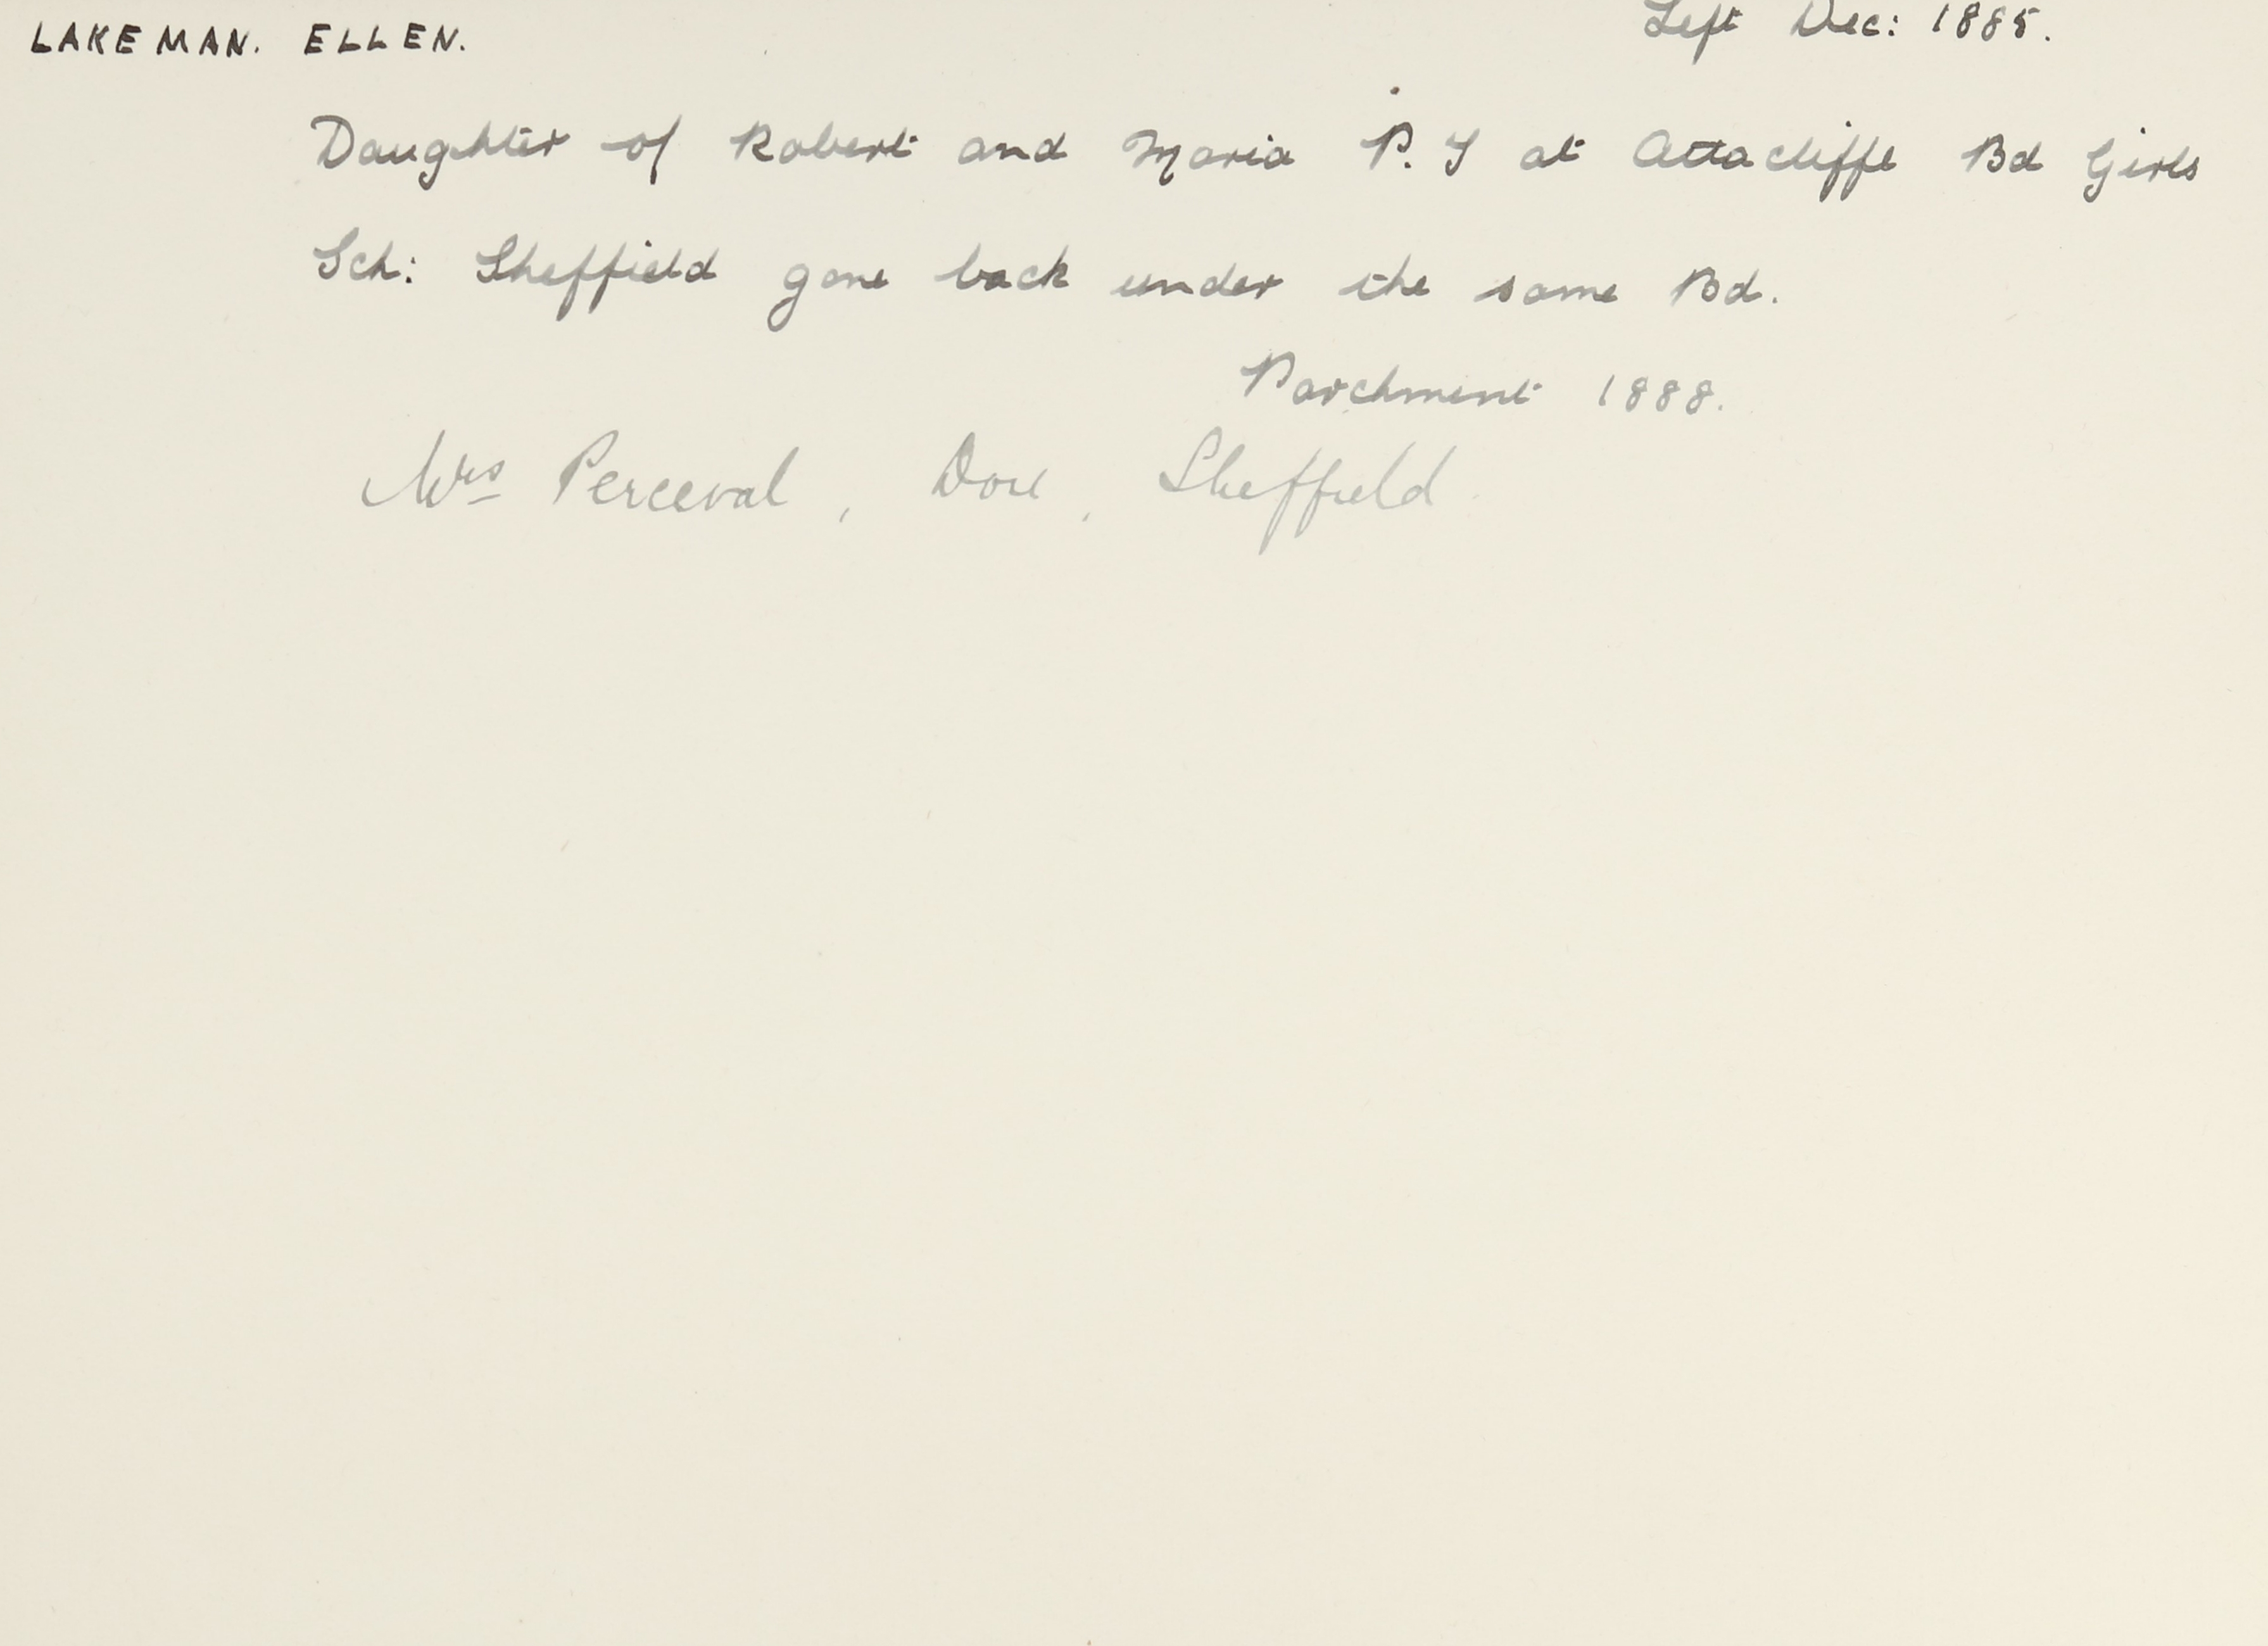 LAKEMAN. ELLEN. Left Dec: 1885.
Daughter of Robert and Maria P.T at Attacliffe Bd Girls
Sch: Sheffield gone back under the same Bd.
Parchment 1888.
Mrs Perceval, Dore, Sheffield